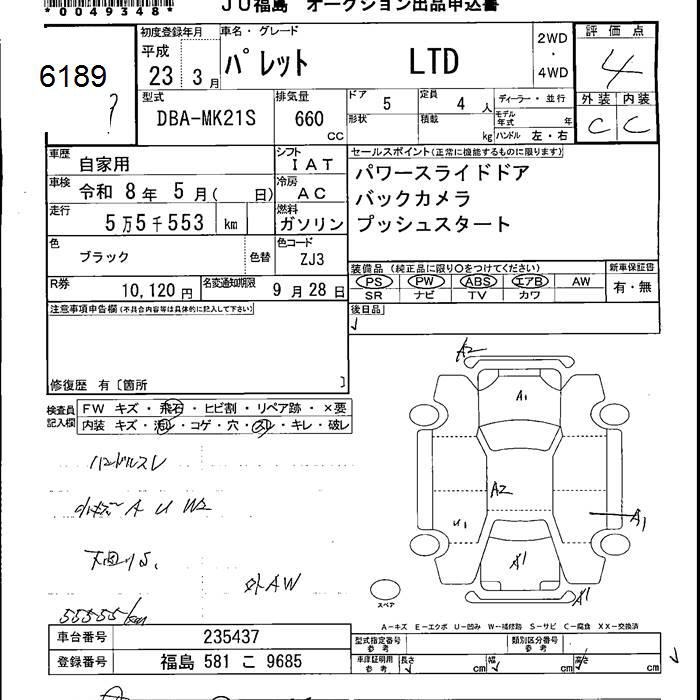 *0049348*
JU福島 オークション出品申込書
6189
初度登録年月
平成
23 3月
車名・グレード
パレット LTD
2WD
・
4WD
評価点
4
外装 内装
C C
型式
DBA-MK21S
排気量
660
cc
ドア 5
定員 4 人
形状
積載
kg
ディーラー・並行
モデル年式 年
ハンドル 左・右
車歴
自家用
シフト
IAT
車検
令和 8年 5月( 日)
冷房
AC
走行
5万5千553 km
燃料
ガソリン
色
ブラック
色替
色コード
ZJ3
R券
10,120円
名変通知期限
9月28日
セールスポイント(正常に機能するものに限ります)
パワースライドドア
バックカメラ
プッシュスタート
装備品 (純正品に限り○をつけてください)
PS PW ABS エアB AW
SR ナビ TV カワ
新車保証書
有・無
後日品
注意事項申告欄(不具合内容等は具体的に記入して下さい)
修復歴 有〔箇所 〕
検査員
記入欄
FW キズ・飛石・ヒビ割・リペア跡・×要
内装 キズ・汚れ・コゲ・穴・スレ・キレ・破レ
ハンドルスレ
小キズ A U W2
外AW
55555km
A2
A1
A2
U1
A1
A1
A1
スペア
A-キズ E-エクボ U-凹み W-補修跡 S-サビ C-腐食 XX-交換済
車台番号
235437
登録番号
福島 581 こ 9685
型式指定番号
参考
類別区分番号
参考
車庫証明用
参考
長さ cm
幅 cm
高さ cm